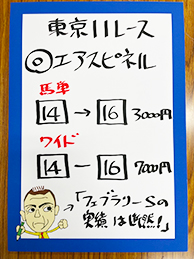 東京11レース
◎エアスピネル
馬単
14→16 3000円
ワイド
14-16 7000円
「フェブラリーSの
実績は断然!」